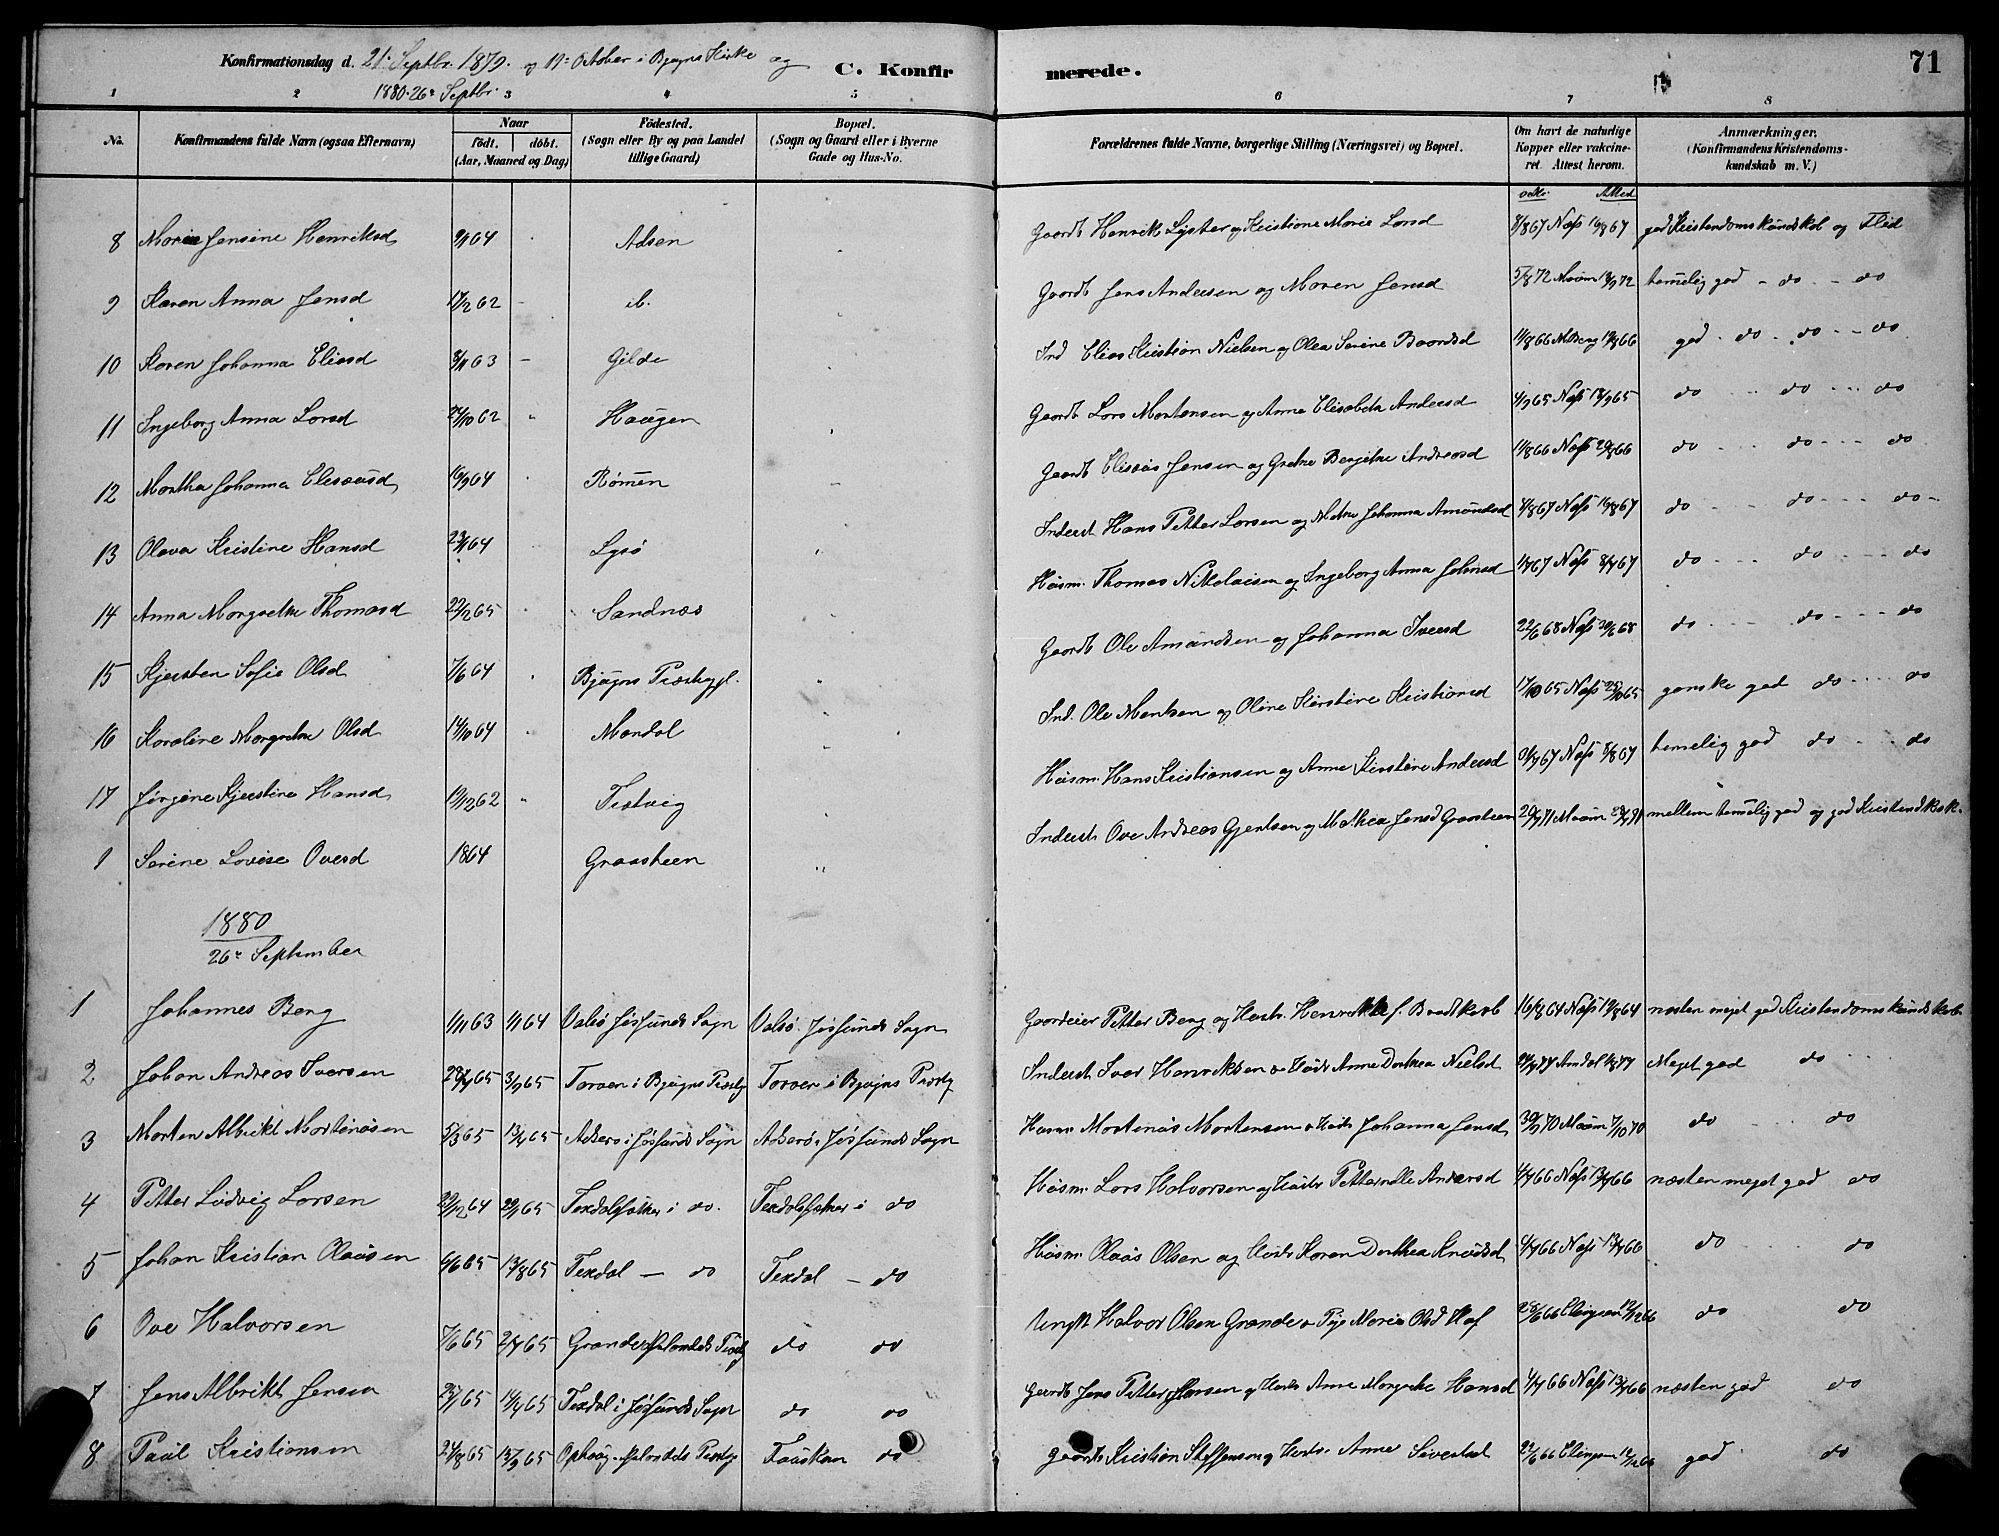 Konfirmationsdag d. 21. Septbr. 1879. og 12te October i Bjugns Kirke og
1880. 26de Septbr.
C. Konfirmerede.
71
1 2 3 4 5 6 7 8
No. Konfirmandens fulde Navn (ogsaa Efternavn) Naar født. døbt. (Aar, Maaned og Dag) Fødested. (Sogn eller By og paa Landet tillige Gaard) Bopæl. (Sogn og Gaard eller i Byerne Gade og Hus-No. Forældrenes fulde Navne, borgerlige Stilling (Næringsvei) og Bopæl. Om havt de naturlige Kopper eller vakcineret. Attest herom. Anmærkninger. (Konfirmandens Kristendomskundskab m. V.)
8 Marie Jensine Henriksd 9/1 64 Adsen Gaardb Henrik Lyster og Kristiane Marie Larsd 8/8 67 Næss 19/8 67 god Kristendomskundskab og Flid
9 Karen Anna Jensd 17/2 62 ib. Gaardb Jens Andersen og Maren Jensd 5/8 72 Maum 13/9 72 temelig god - do - do
10 Karen Johanna Eliasd 3/11 63 Gilde Ind Elias Kristian Nielsen og Olea Serine Baardsd 11/8 66 19/8 66 god do do do
11 Ingeborg Anna Larsd 27/10 62 Haugen Gaardb Lars Mortensen og Anne Elisabeth Andersd 4/9 65 Næss 18/9 65 do do do
12 Martha Johanna Eliseusd 10/9 64 Rømen Gaardb Eliseus Jensen og Grethe Bergitte Andreasd 11/8 66 Næss 20/8 66 do do do
13 Olava Kristine Hansd 23/1 64 Lysø Inderst Hans Petter Larsen og Mette Johanna Amundsd 8/8 67 Næss 19/8 67 do do do
14 Anna Margrethe Thomasd 22/2 65 Sandnæs Husm. Thomas Nikolaisen og Ingeborg Anna Johnsd 1/7 67 Næss 8/7 67 do do do
15 Kjersten Sofie Olsd 7/6 64 Bjugns Præstegjl. Gaardb Ole Amundsen og Johanna Iversd 22/6 68 Næss 20/6 68 do do do
16 Karoline Margrethe Olsd 14/10 64 Mandal Ind. Ole Mentsen og Oline Kirstine Kristiansd 17/10 65 Næss 25/10 65 ganske god do do
17 Jørgine Kjerstine Hansd 19/12 62 Teksvig Husm. Hans Kristiansen og Anne Kirstine Andersd 31/7 67 Næss 8/8 67 temelig god do do
1 Serine Lovise Ovesd 1864 Graasteen Inderst Ove Andreas Gjertsen og Mathea Jensd Graasteen 20/7 71 Maum 28/7 71 mellem temelig god og god Kristendkdsk.
1880
26de September
1 Johannes Berg 1/11 63 1/1 64 Valsø Jøssunds Sogn Valsø Jøssunds Sogn Gaardeier Petter Berg og Hustr. Henrikke f. Brodtkorb 16/8 64 Næss 19/8 64 næsten meget god Kristendomskundskab
2 Johan Andreas Iversen 29/7 65 3/9 65 Tarven i Bjugns Præstg Tarven i Bjugns Præstg Inderst Iver Henriksen o Hustr Anne Dorthea Nielsd 24/7 77 Amdal 1/8 77 Meget god do
3 Morten Albrikt Mortinusen 5/3 65 13/4 65 Adserø i Jøssunds Sogn Adserø i Jøssunds Sogn Husm Mortinus Mortensen o Hustr Johanna Jensd 30/9 70 Maum 7/10 70 do do
4 Petter Ludvig Larsen 29/12 64 22/1 65 Texdalssæther i do. Texdalssæther i do Husm. Lars Halvorsen og Hustr Petternelle Andersd 4/7 66 Næss 13/7 66 næsten meget god do
5 Johan Kristian Olausen 6/6 65 13/8 65 Texdal - do Texdal - do Husm Olaus Olsen og Hustr Karen Dorthea Knudsd 4/7 66 Næss 13/7 66 do do
6 Ove Halvorsen 7/6 65 2/7 65 Grande Ørlandets Præstg do do Ungk Halvor Olsen Grande o Pige Maria Olsd Haf 28/6 66 Elingsen 12/12 66 do do
7 Jens Albrikt Jensen 25/1 65 14/4 65 Texdal i Jøssunds Sogn do do Gaardb Jens Petter Hansen og Hustr Anne Margrethe Hansd 4/7 66 Næss 13/7 66 næsten god do
8 Paul Kristiansen 24/8 65 15/9 65 Ophaug Ørlandets Præstg do Gaardb Kristian Steffensen og Hustr Anne Sivertsd 22/6 66 Elingsen 12/12 66 god do